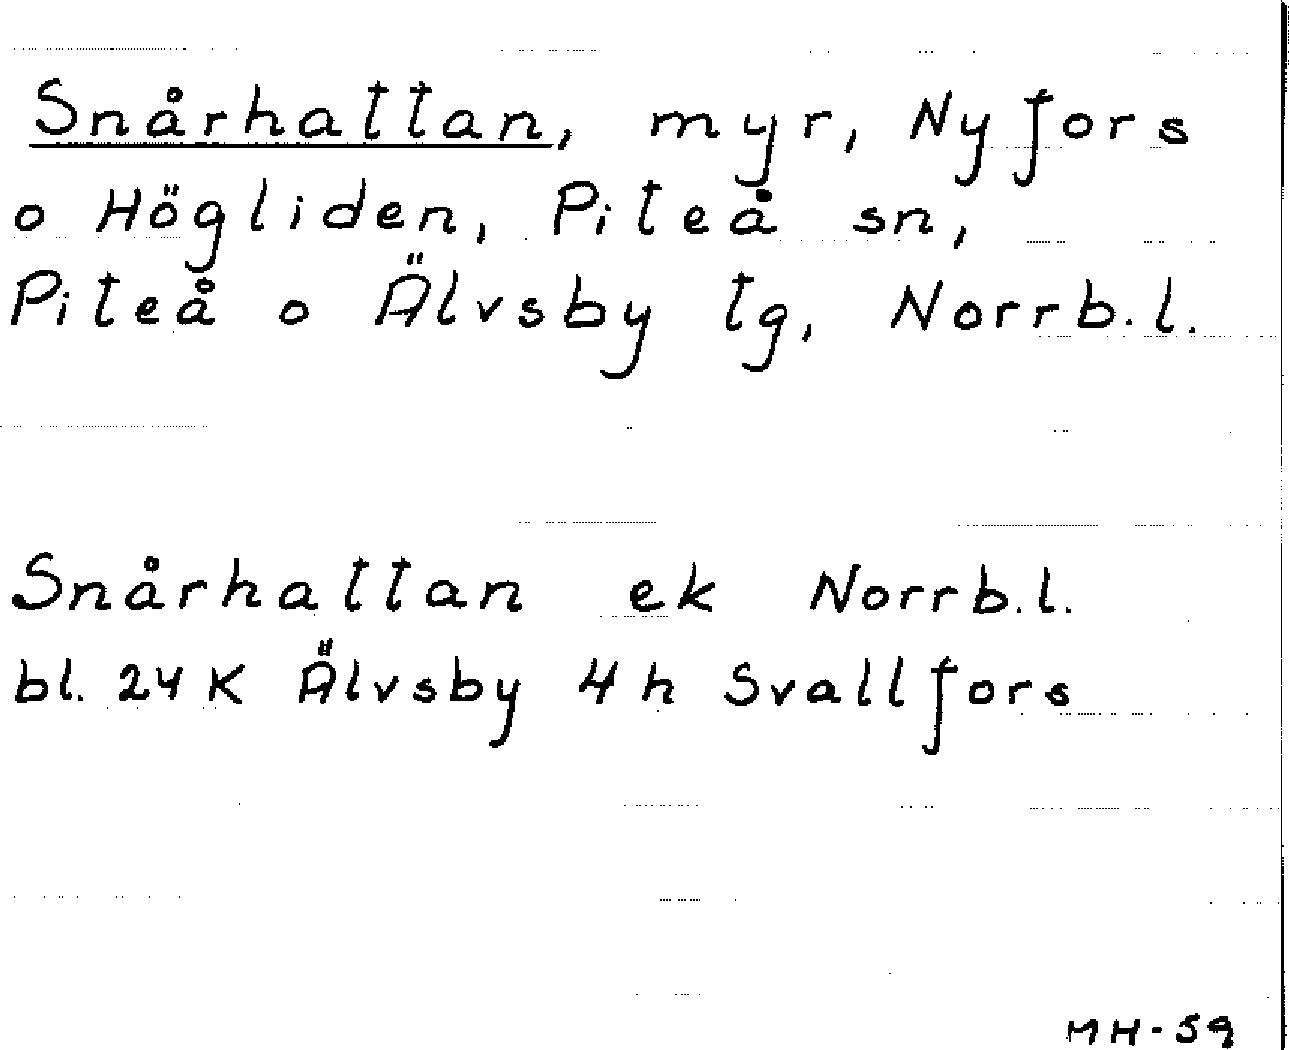 Snårhattan, myr, Nyfors
o Högliden, Piteå sn,
Piteå o Älvsby tg, Norrb.l.
Snårhattan ek Norrb.l.
bl. 24 K Älvsby 4 h Svallfors
MH-59